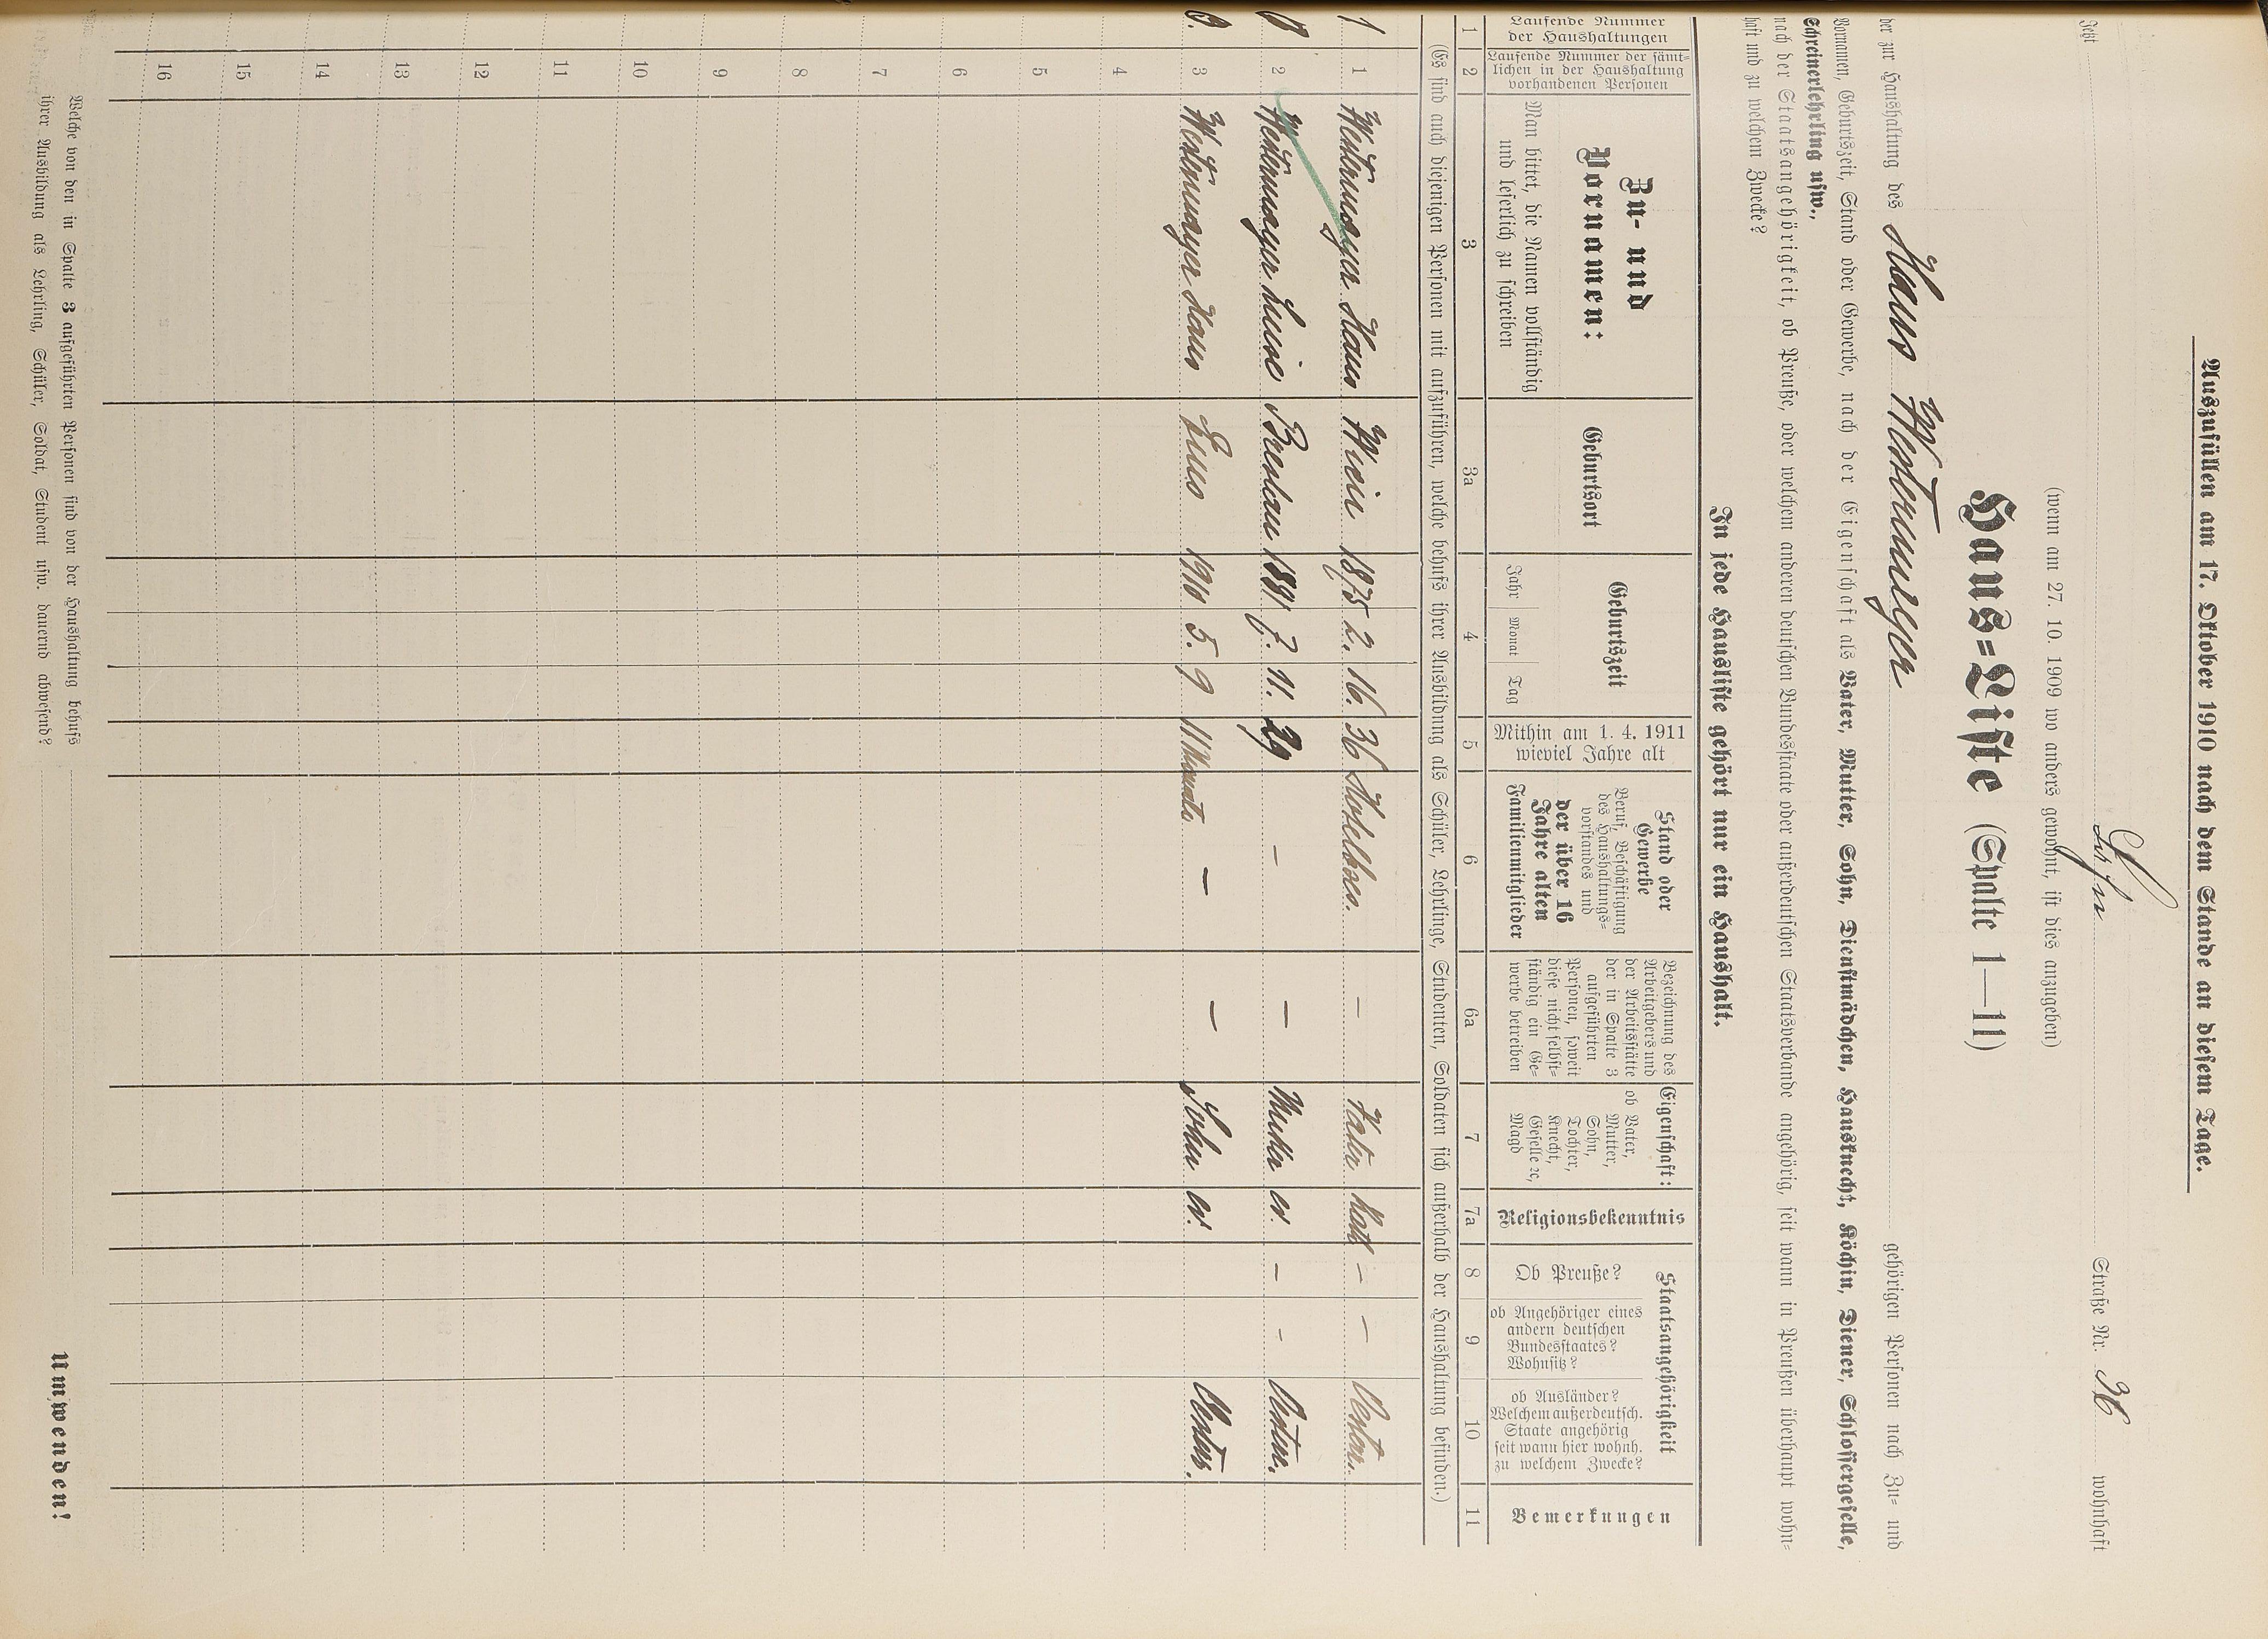 Auszufüllen am 17. Oktober 1910 nach dem Stande an diesem Tage.
Jetzt Straße Nr. 36 wohnhaft
(wenn am 27. 10. 1909 wo anders gewohnt, ist dies anzugeben)
Haus=Liste (Spalte 1—11)
der zur Haushaltung des Hans Westermeyer gehörigen Personen nach Zu= und
Vornamen, Geburtszeit, Stand oder Gewerbe, nach der Eigenschaft als Vater, Mutter, Sohn, Dienstmädchen, Hausknecht, Köchin, Diener, Schlossergeselle,
Schreinerlehrling usw.,
nach der Staatsangehörigkeit, ob Preuße, oder welchem anderen deutschen Bundesstaate oder außerdeutschen Staatsverbande angehörig, seit wann in Preußen überhaupt wohn=
haft und zu welchem Zwecke?
In jede Hausliste gehört nur ein Haushalt.
Laufende Nummer
der Haushaltungen
Laufende Nummer der sämt=
lichen in der Haushaltung
vorhandenen Personen
Zu- und
Vornamen:
Man bittet, die Namen vollständig
und leserlich zu schreiben
Geburtsort
Geburtszeit
Jahr Monat Tag
Mithin am 1. 4. 1911
wieviel Jahre alt
Stand oder
Gewerbe
Beruf, Beschäftigung
des Haushaltungs=
vorstandes und
der über 16
Jahre alten
Familienmitglieder
Bezeichnung des
Arbeitgebers und
der Arbeitsstätte
der in Spalte 3
aufgeführten
Personen, soweit
diese nicht selbst=
ständig ein Ge=
werbe betreiben
Eigenschaft:
ob Vater,
Mutter,
Sohn,
Tochter,
Knecht,
Geselle ꝛc,
Magd
Religionsbekenntnis
Staatsangehörigkeit
Ob Preuße?
ob Angehöriger eines
andern deutschen
Bundesstaates?
Wohnsitz?
ob Ausländer?
Welchem außerdeutsch.
Staate angehörig
seit wann hier wohnh.
zu welchem Zwecke?
Bemerkungen
1 2 3 3a 4 5 6 6a 7 7a 8 9 10 11
(Es sind auch diejenigen Personen mit aufzuführen, welche behufs ihrer Ausbildung als Schüler, Lehrlinge, Studenten, Soldaten sich außerhalb der Haushaltung befinden.)
1 1 Hans Wien 1875 2. 16. 36 — Vater kath — —
2 Luise Breslau 1881 7. 11. 29 — — Mutter ev. — —
3 Hans 1910 5. 9 11 Monate — — Sohn ev.
4
5
6
7
8
9
10
11
12
13
14
15
16
Welche von den in Spalte 3 aufgeführten Personen sind von der Haushaltung behufs
ihrer Ausbildung als Lehrling, Schüler, Soldat, Student usw. dauernd abwesend?
Umwenden!